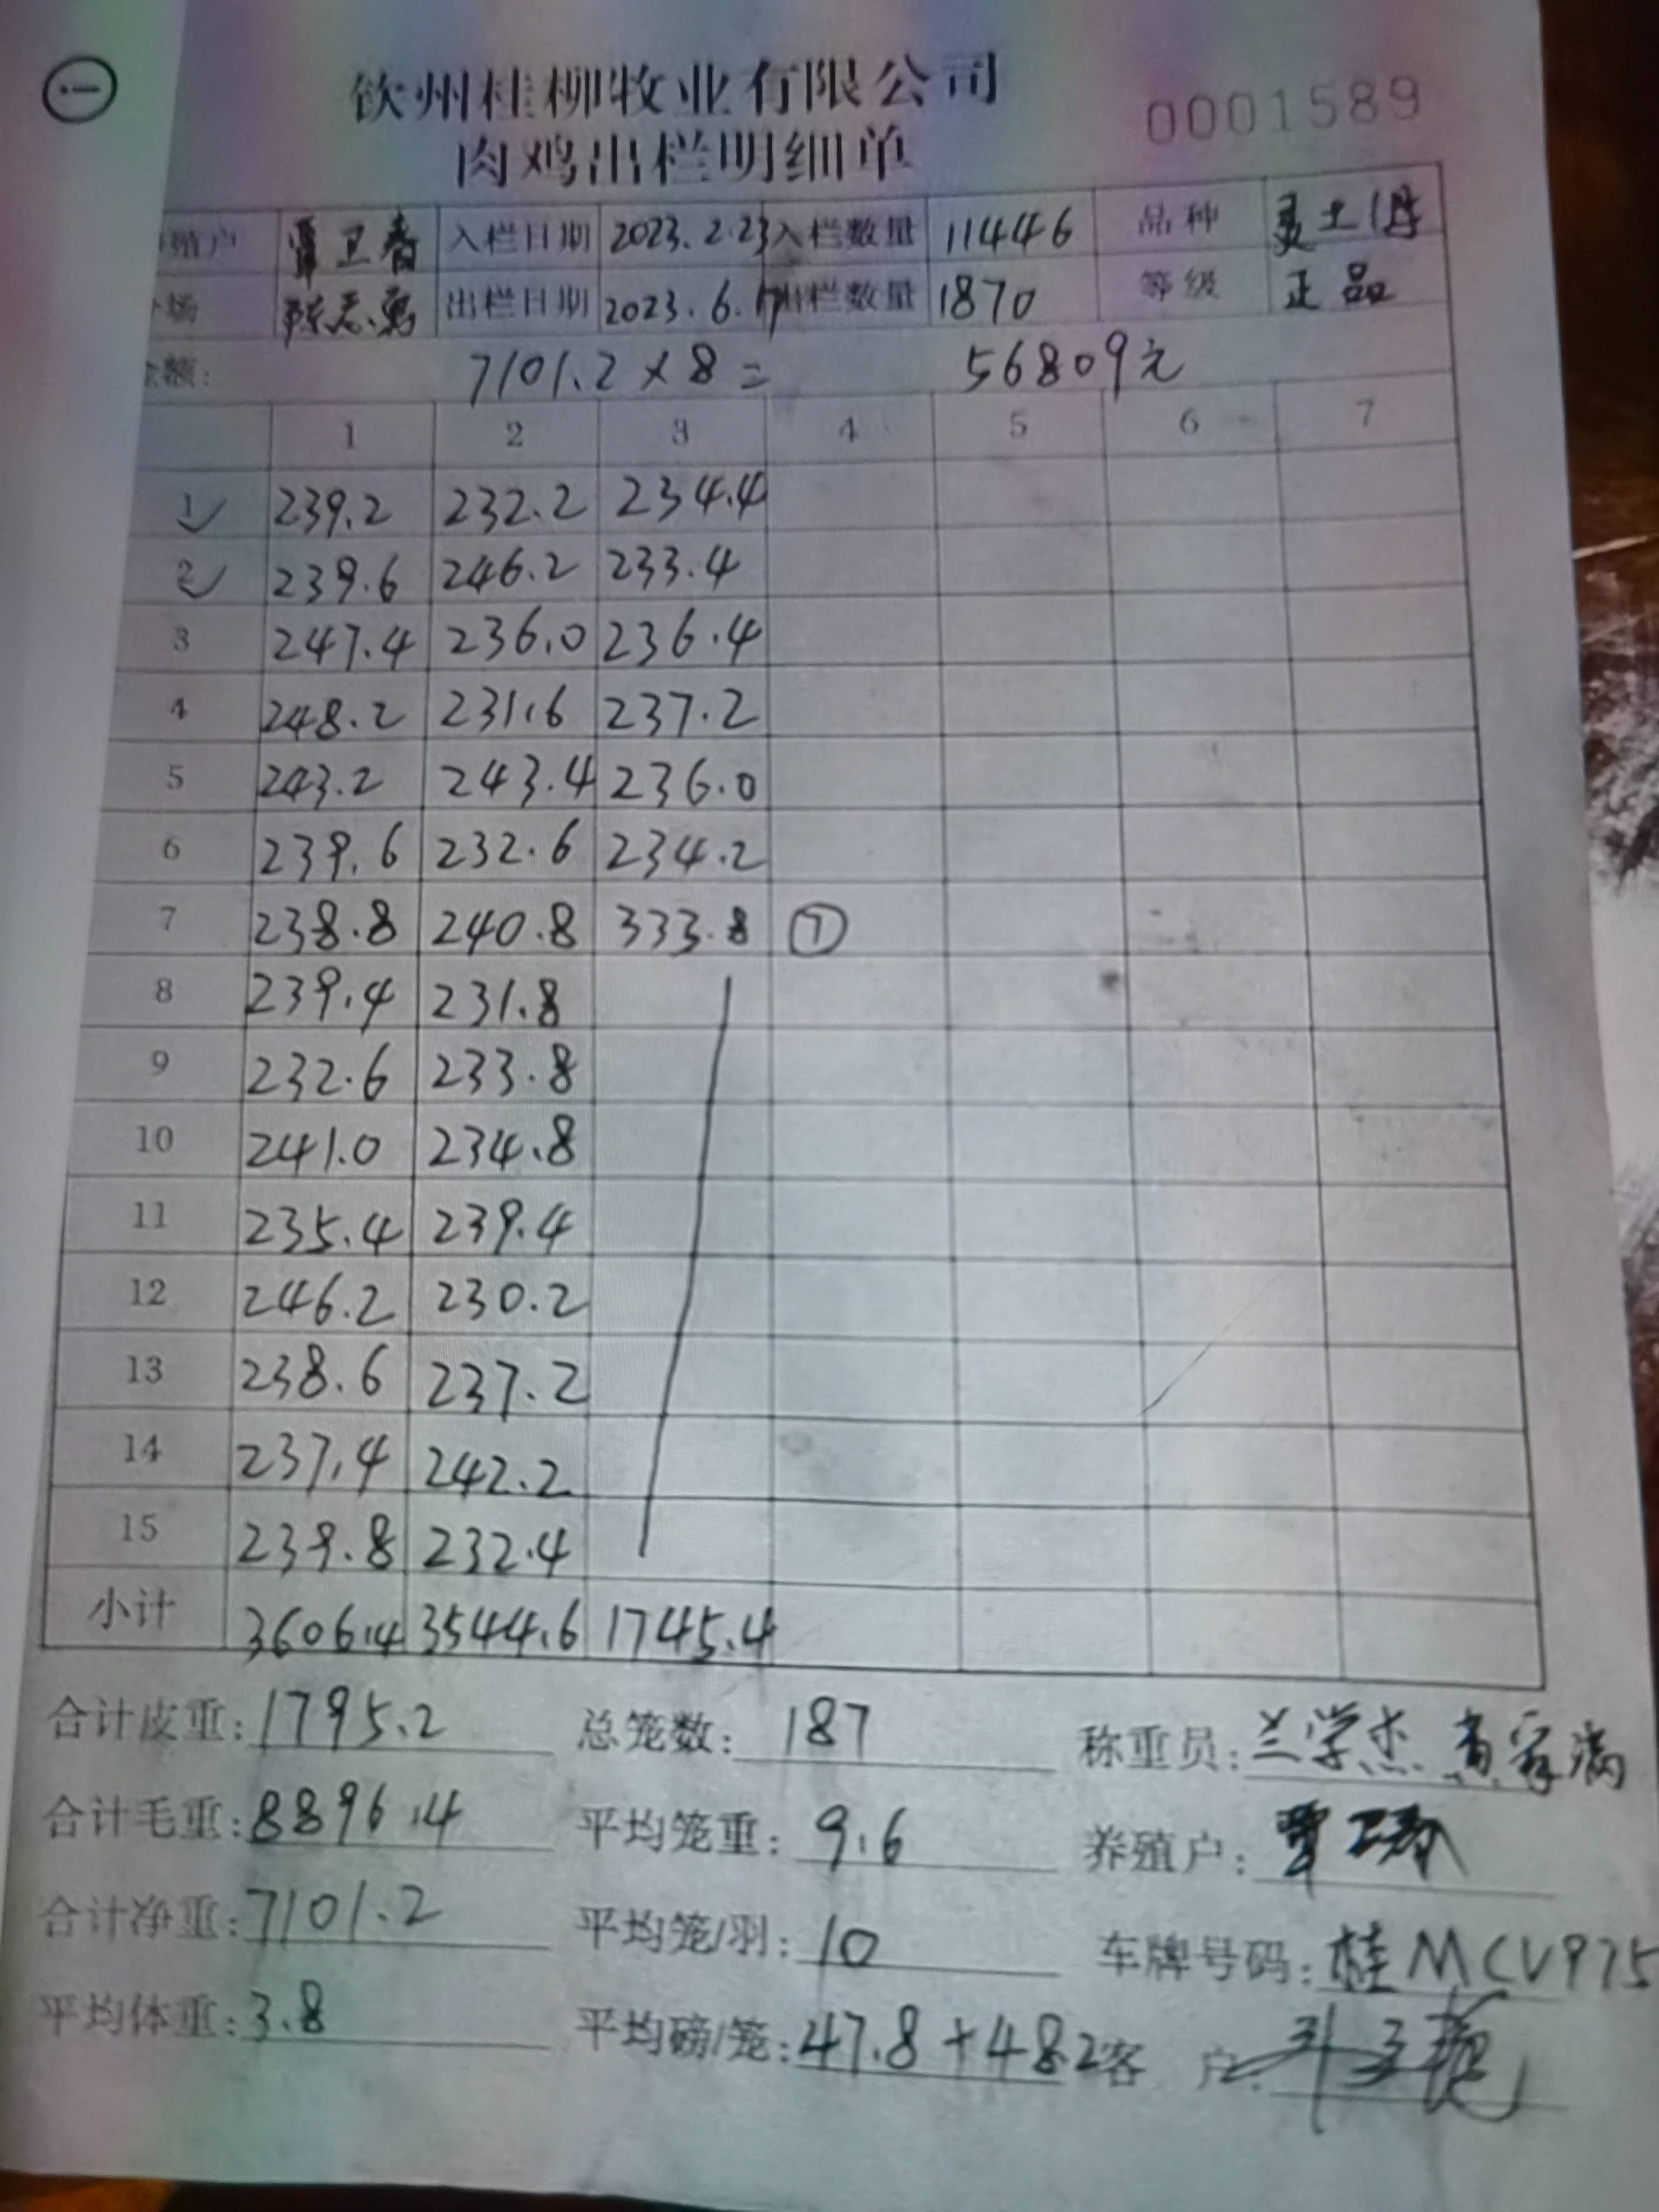 钦州桂柳牧业有限公司
肉鸡出栏明细单
0001589
殖户 覃卫春 入栏日期 2023.2.23 入栏数量 11446 品种 灵土1号
场 陈志勇 出栏日期 2023.6.17 出栏数量 1870 等级 正品
金额: 7101.2×8= 56809元
1 2 3 4 5 6 7
1 239.2 232.2 234.4
2 239.6 246.2 233.4
3 247.4 236.0 236.4
4 248.2 231.6 237.2
5 243.2 243.4 236.0
6 239.6 232.6 234.2
7 238.8 240.8 333.8 ⑦
8 239.4 231.8
9 232.6 233.8
10 241.0 234.8
11 235.4 239.4
12 246.2 230.2
13 238.6 237.2
14 237.4 242.2
15 239.8 232.4
小计 3606.4 3544.6 1745.4
合计皮重: 1795.2 总笼数: 187 称重员: 兰学杰
合计毛重: 8896.4 平均笼重: 9.6 养殖户:
合计净重: 7101.2 平均笼/羽: 10 车牌号码: 桂MCV975
平均体重: 3.8 平均磅/笼: 47.8+48.2 客户: